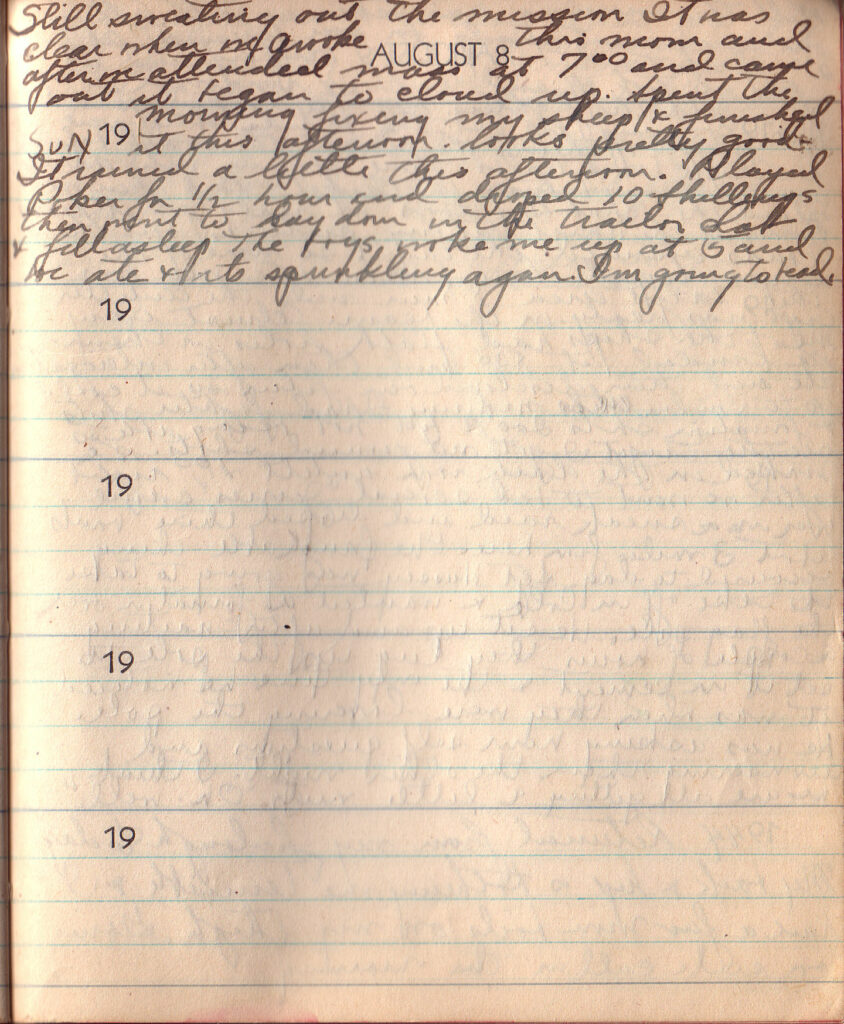 Still sweating out the mission It was
clear when we awoke this morn and
AUGUST 8
after we attended mass at 7⁰⁰ and came
out it began to cloud up. Spent the
morning fixing my sheep & finished
SUN 19 it this afternoon. looks pretty good
It rained a little this afternoon. Played
Poker for 1/2 hour and dropped 10 shillings
then went to lay down in the
& fell asleep The boys woke me up at 5 and
we ate & its sprinkling again. I'm going to read.
19
19
19
19